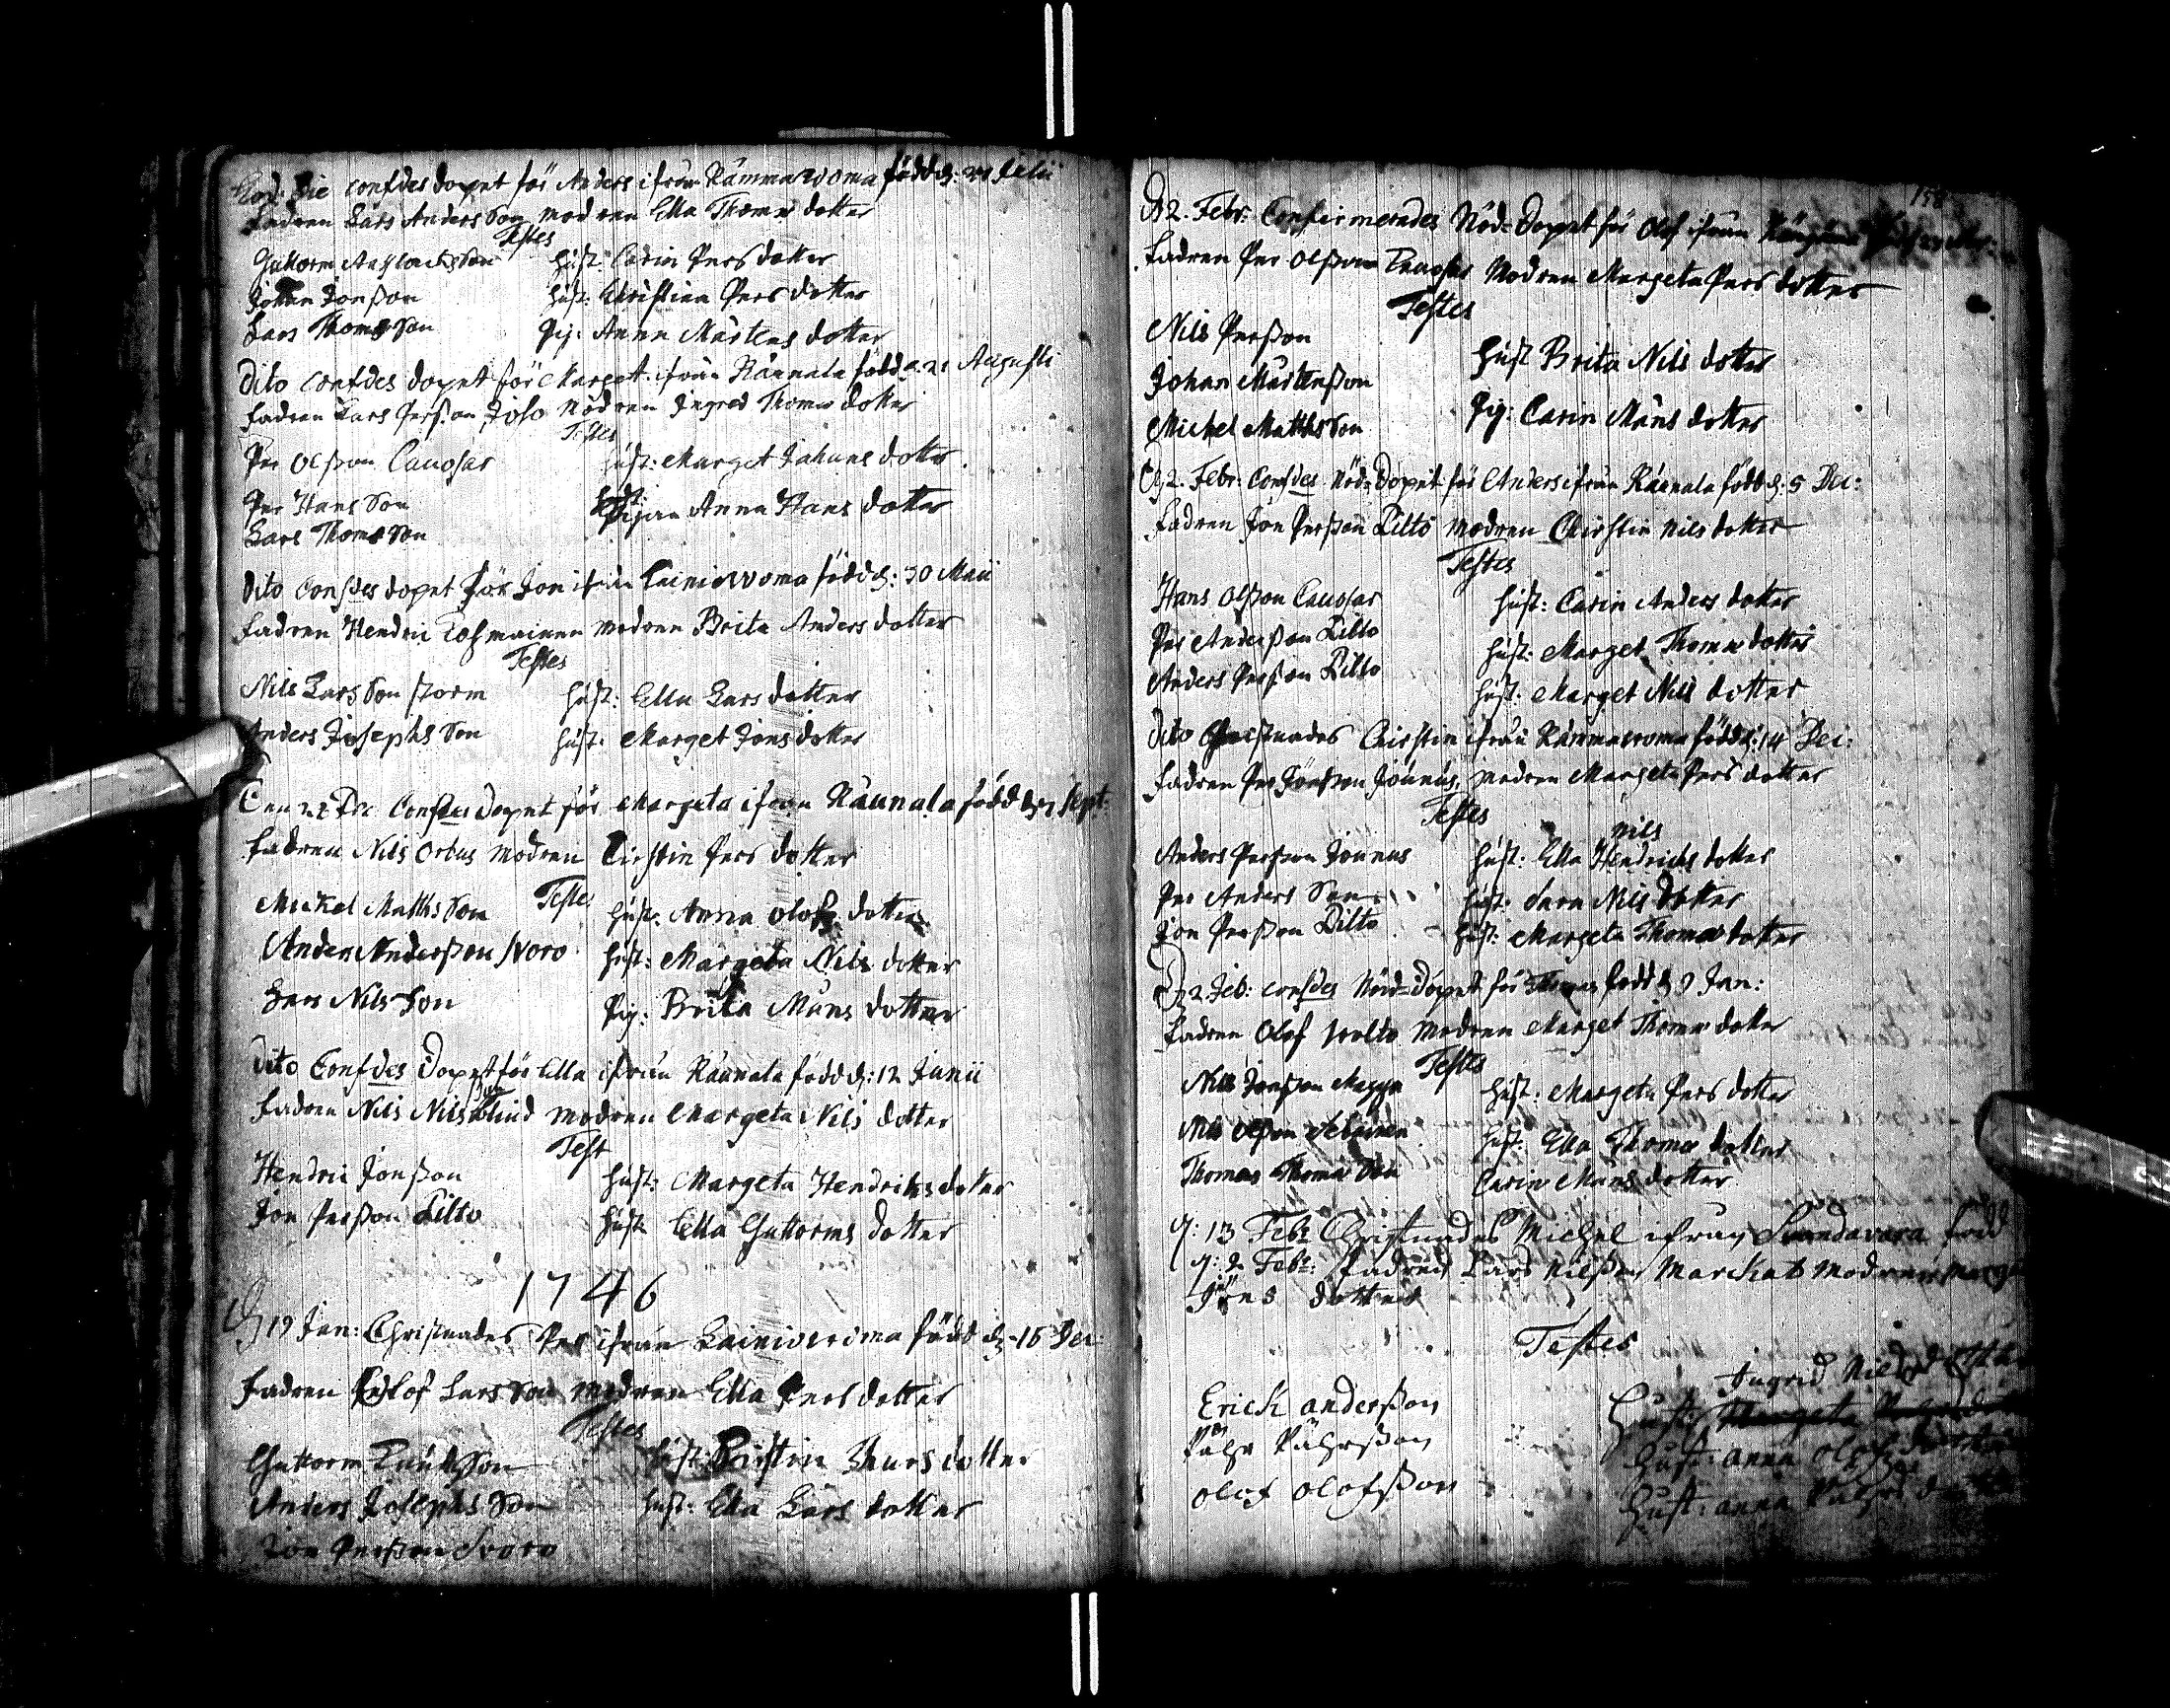 Eod: Die confdes dopet för Anders ifrån Råmmawoma född d: 21 Julii
Fadren Lars Andersson modren Ella Thomæ dotter
Testes
Guttorm Anslacksson hust: Carin Pers dotter
Johan Jonsson hust: Christina Pers dotter
Lars Thomæ Son Pig: Anna Mårtens dotter
Dito confdes dopet för Marget ifrån Rånnala född d. 21 Augusti
Fadren Lars Persson modren Ingred Thomæ dotter
Testes
Per Olsson Cauosar hust: Marget Johans dotter
Per Hans Son Pigan Anna Hans dotter
Lars Thomæ Son
Dito Confdes dopet för Jon ifrån Lainiowoma född d: 30 Maii
Fadren Hendric modren Brita Anders dotter
Testes
Nils Lars Son Storm hust: Ella Lars dotter
Anders Josephs Son hust: Marget Jons dotter
Den 22 Dec Confdes dopet för Margeta ifrån Rånnala född d. Sept:
Fadren Nils Orbus modren Cirstin Pers dotter
Teste
Mickel Matths Son hust: Anna Olofs dotter
Anders Andersson Svoro hust: Margeta Nils dotter
Lars Nils Son Pig: Brita Måns dotter
Dito Confdes Dopet för Ella ifrån Rånnala född d: 12 Junii
Fadren Nils Nils Son Blind modren Margeta Nils dotter
Test
Hendric Jonsson hust: Margeta Hendrichs dotter
Jon Persson Lilto hust: Ella Guttorms dotter
1746
D 19 Jan: Christnades Per ifrån Lainiowoma född d. 16 Dec
Fadren Olof Lars Son modren Ella Pers dotter
Testes
Guttorm hust: Cirstin dotter
Anders Josephs Son hust: Ella Lars dotter
Jon Persson Svoro
158
D 2. Febr: Confirmerades Nöd-Dopet för Olof ifrån
Fadren Per Olsson Cauosar Modren Margeta Pers dotter
Testes
Nils Persson hust Brita Nils dotter
Johan Mårtensson Pig: Carin Måns dotter
Michel Matths Son
D 2. Febr: Confdes Nöd-Dopet för Anders ifrån Rånnala född d: 5 Dec:
Fadren Jon Persson Lilto modren Christin Nils dotter
Testes
Hans Olsson Cauosar hust: Carin Anders dotter
Per Andersson Lilto hust: Marget Thomæ dotter
Anders Persson Lilto hust: Marget Nils dotter
Dito Christnades Christin ifrån Råmmawoma född d: 14 Dec:
Fadren Per Jonsson Jounus, modren Margeta Pers dotter
Testes
Nils
Anders Persson Jounus hust: Ella Hendrichs dotter
Per Anders Son hust: Sara Nils dotter
Jon Persson Lilto hust: Margeta Thomæ dotter
D 2 Feb: confdes Nöd-Dopet för Thomas född d 9 Jan:
Fadren Olof modren Marget Thomæ dotter
Testes
Nils Jonsson Magga hust: Margeta Pers dotter
Nils Olsson hust: Ella Thomæ dotter
Thomas Thomæ Son Carin Måns dotter
d: 13 Febr: Christnades Michel ifrån Soundavara född
d: 2 Febr: Fadren Lars Nilsson Markat Modren
Jöns dotter
Testes
Erick andersson Ingrid Nils
Påhr Påhrsson hust: Margeta
olof olofsson Hust: anna olofs
Hust: anna Påhrs